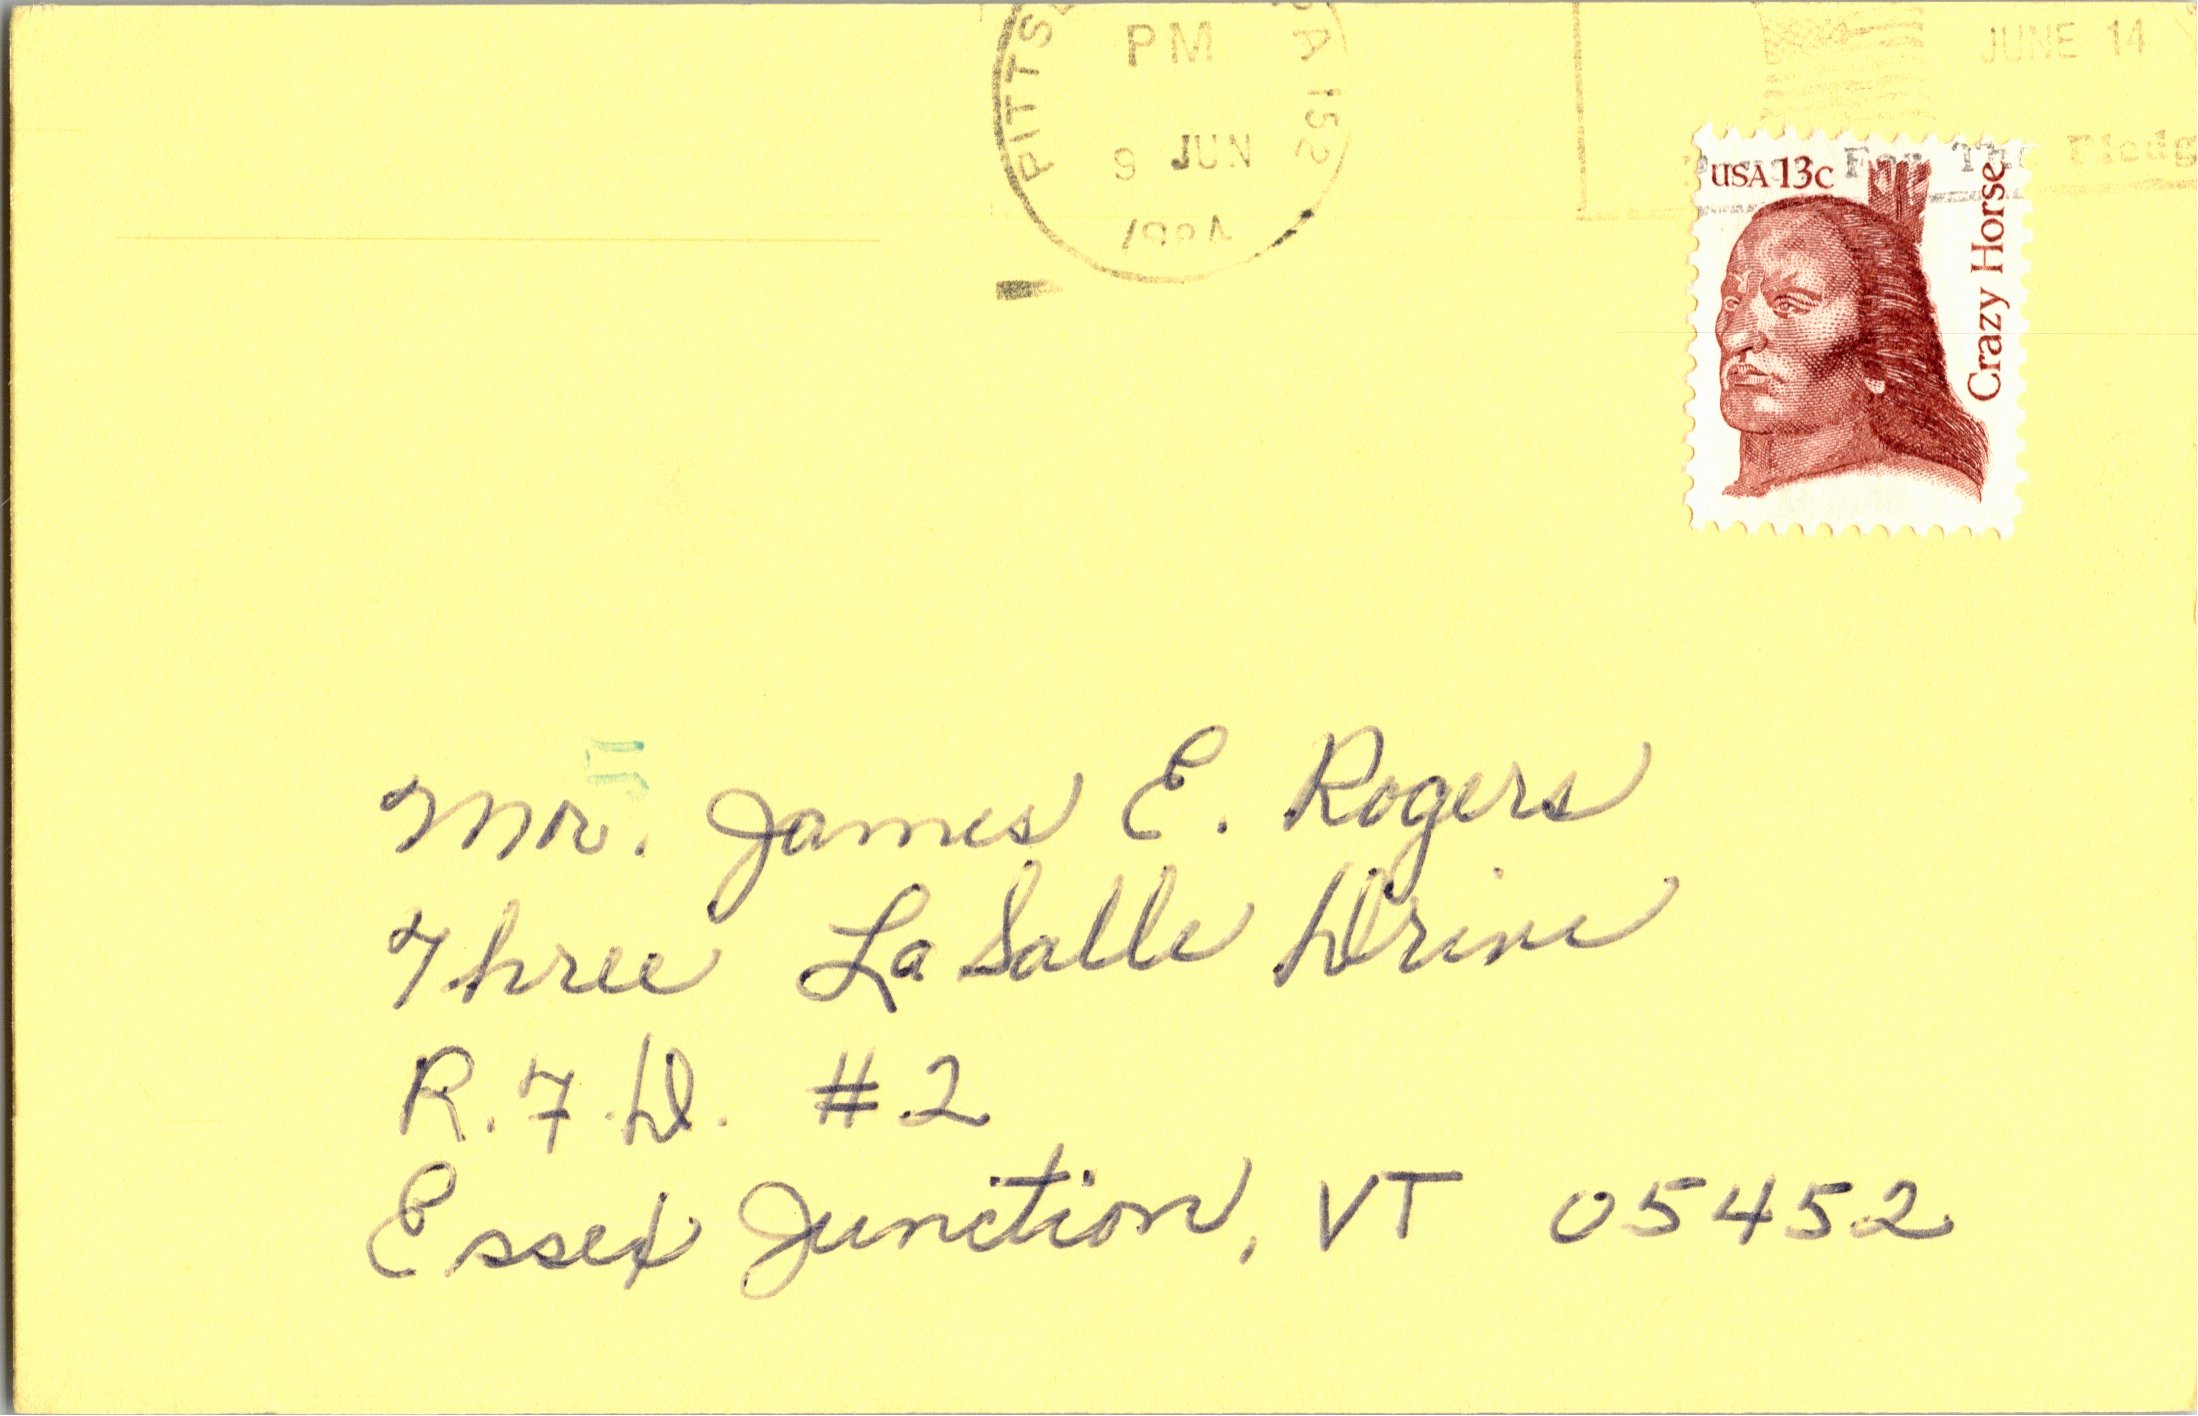 PM
JUNE 14
PA 152
9 JUN
For The Pledg
USA 13c
Crazy Horse
Mr. James E. Rogers
Three La Salle Drive
R.F.D. #2
Essex Junction, VT 05452